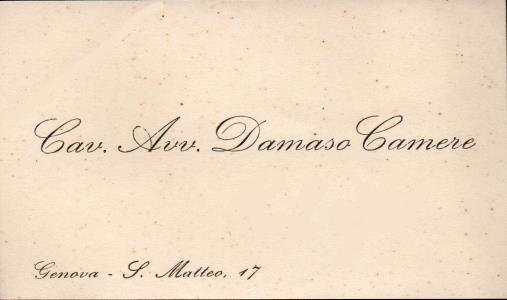 Cav. Avv. Damaso Camere
Genova - S. Matteo, 17